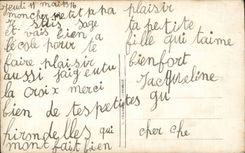 Jeudi 11 mai 1916
mon cher petit papa
je suis sage
et vais bien a
lécole pour te
faire plaisir
aussi jaig eu tu
la croix merci
bien de tes petites
hirondelles qui
mont fait bien
plaisir
ta petite
fille qui taime
bien fort
Jacqueline
cher che